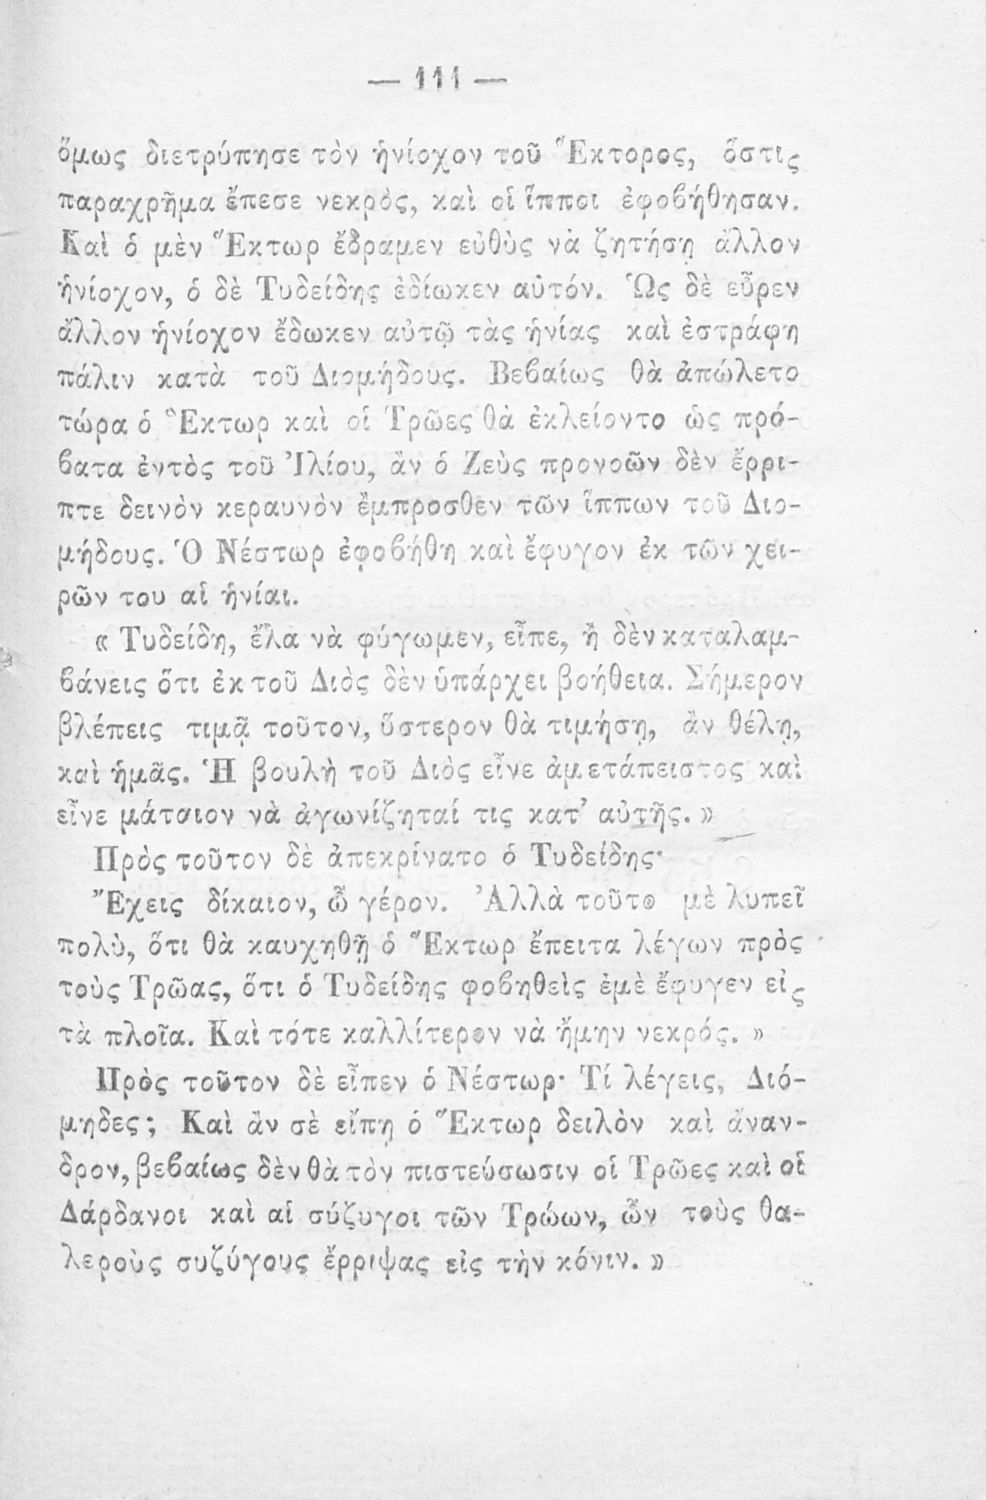 — 111 —
ὅμως διετρύπησε τὸν ἡνίοχον τοῦ Ἕκτορος, ὅστις
παραχρῆμα ἔπεσε νεκρὸς, καὶ οἱ ἵπποι ἐφοβήθησαν.
Καὶ ὁ μὲν Ἕκτωρ ἔδραμεν εὐθὺς νὰ ζητήσῃ ἄλλον
ἡνίοχον, ὁ δὲ Τυδείδης ἐδίωκεν αὐτόν. Ὡς δὲ εὗρεν
ἄλλον ἡνίοχον ἔδωκεν αὐτῷ τὰς ἡνίας καὶ ἐστράφη
πάλιν κατὰ τοῦ Διομήδους. Βεβαίως θὰ ἀπώλετο
τώρα ὁ Ἕκτωρ καὶ οἱ Τρῶες θὰ ἐκλείοντο ὡς πρό-
βατα ἐντὸς τοῦ Ἰλίου, ἂν ὁ Ζεὺς προνοῶν δὲν ἔρρι-
πτε δεινὸν κεραυνὸν ἔμπροσθεν τῶν ἵππων τοῦ Διο-
μήδους. Ὁ Νέστωρ ἐφοβήθη καὶ ἔφυγον ἐκ τῶν χει-
ρῶν του αἱ ἡνίαι.
« Τυδείδη, ἔλα νὰ φύγωμεν, εἶπε, ἢ δὲν καταλαμ-
βάνεις ὅτι ἐκ τοῦ Διὸς δὲν ὑπάρχει βοήθεια. Σήμερον
βλέπεις τιμᾷ τοῦτον, ὕστερον θὰ τιμήσῃ, ἂν θέλῃ,
καὶ ἡμᾶς. Ἡ βουλὴ τοῦ Διὸς εἶνε ἀμετάπειστος καὶ
εἶνε μάταιον νὰ ἀγωνίζηταί τις κατ’ αὐτῆς. »
Πρὸς τοῦτον δὲ ἀπεκρίνατο ὁ Τυδείδης·
Ἔχεις δίκαιον, ὦ γέρον. Ἀλλὰ τοῦτο μὲ λυπεῖ
πολὺ, ὅτι θὰ καυχηθῇ ὁ Ἕκτωρ ἔπειτα λέγων πρὸς
τοὺς Τρῶας, ὅτι ὁ Τυδείδης φοβηθεὶς ἐμὲ ἔφυγεν εἰς
τὰ πλοῖα. Καὶ τότε καλλίτερον νὰ ἤμην νεκρός. »
Πρὸς τοῦτον δὲ εἶπεν ὁ Νέστωρ· Τί λέγεις, Διό-
μηδες; Καὶ ἂν σὲ εἴπῃ ὁ Ἕκτωρ δειλὸν καὶ ἄναν-
δρον, βεβαίως δὲν θὰ τὸν πιστεύσωσιν οἱ Τρῶες καὶ οἱ
Δάρδανοι καὶ αἱ σύζυγοι τῶν Τρώων, ὧν τοὺς θα-
λεροὺς συζύγους ἔρριψας εἰς τὴν κόνιν. »